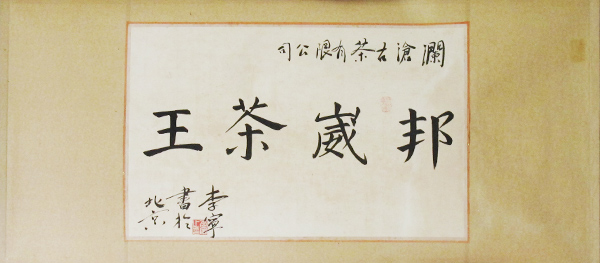 瀾滄古茶有限公司
邦崴茶王
李寧
書於
北京